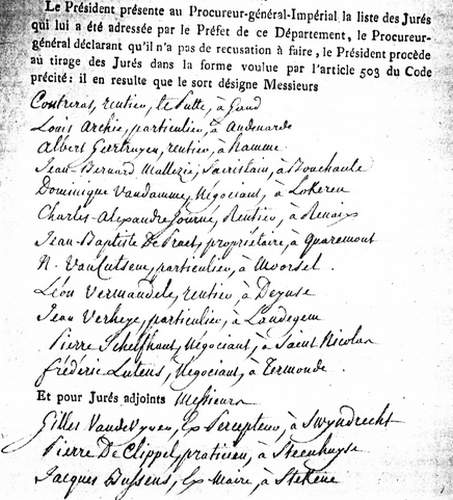 Le Président présente au Procureur-général-Impérial la liste des Jurés
qui lui a été adressée par le Préfet de ce Département, le Procureur-
général déclarant qu'il n'a pas de recusation à faire, le Président procède
au tirage des Jurés dans la forme voulue par l'article 503 du Code
précité: il en resulte que le sort désigne Messieurs
rentier, à Gand
Louis Archie, particulier, à Audenarde
Albert Geertruyen, rentier, à hamme
Jean-Bernard Mallezie, Sacristain, à Bouchaute
Dominique Vandamme, Négociant, à Lokeren
Charles-Alexandre Journé, Rentier, à Renaix
Jean-Baptiste De Praet, propriétaire, à Quaremont
N. VanCutsem, particulier, à Moorsel.
Léon Vermandele, rentier, à Deynse
Jean Verheye, particulier, à Landegem
Pierre Schelfhout, Négociant, à Saint Nicolas
frédéric Lutens, Négociant, à Termonde
Et pour Jurés adjoints Messieurs
Gilles VandeVyver, Ex Percepteur, à Swyndrecht
Pierre De Clippel, praticien, à Steenhuyse
Jacques Buyssens, Ex Maire, à Stekene